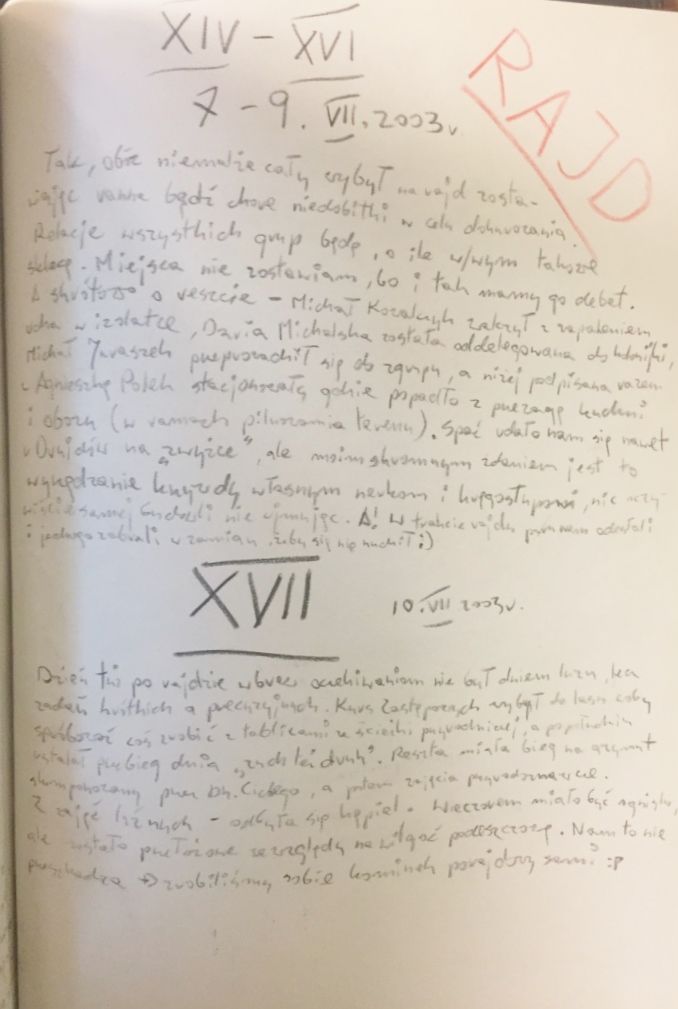 XIV – XVI
7 – 9. VII. 2003r.
RAJD
Tak, obóz niemalże cały wybył na rajd zosta-
wiając ranne bądź chore niedobitki w celu
Relacje wszystkich grup będą, o ile w/wym
Miejsca nie zostawiam, bo i tak mamy go debet.
A skrótowo o reszcie – Michał Kowalczyk z zapaleniem
ucha w izolatce, Daria Michalska została oddelegowana do
Michał Juraszek przeprowadził się do zgrupu, a niżej podpisana razem
z Agnieszką Polek stacjonowały gdzie popadło z przewagą kuchni
i obozu (w ramach pilnowania terenu). Spać udało nam się nawet
u Druidów na "zwyżce", ale moim skromnym zdaniem jest to
wyrządzanie krzywdy własnym nerkom i kręgosłupowi, nic oczy-
wiście samej budowli nie ujmując. A! W trakcie rajdu odesłali
i zabrali w zamian, żeby się nie nudził ;)
XVII
10. VII 2003r.
Dzień tuż po rajdzie wbrew oczekiwaniom nie był dniem luzu, lecz
zadań krótkich a precyzyjnych. Kurs Zastępowych wybył do lasu coby
spróbować coś zrobić z tablicami ze ścieżki przyrodniczej, a popołudniu
ustalał przebieg dnia "zuch też druh". Reszta miała bieg na azymut
skomponowany przez Dh. Cichego, a potem zajęcia przyrodoznawcze.
Z zajęć luźnych – odbyła się kąpiel. Wieczorem miało być ognisko,
ale zostało przełożone ze względu na wilgoć podeszczową. Nam to nie
przeszkadza → zrobiliśmy sobie kominek porajdowy sami :P